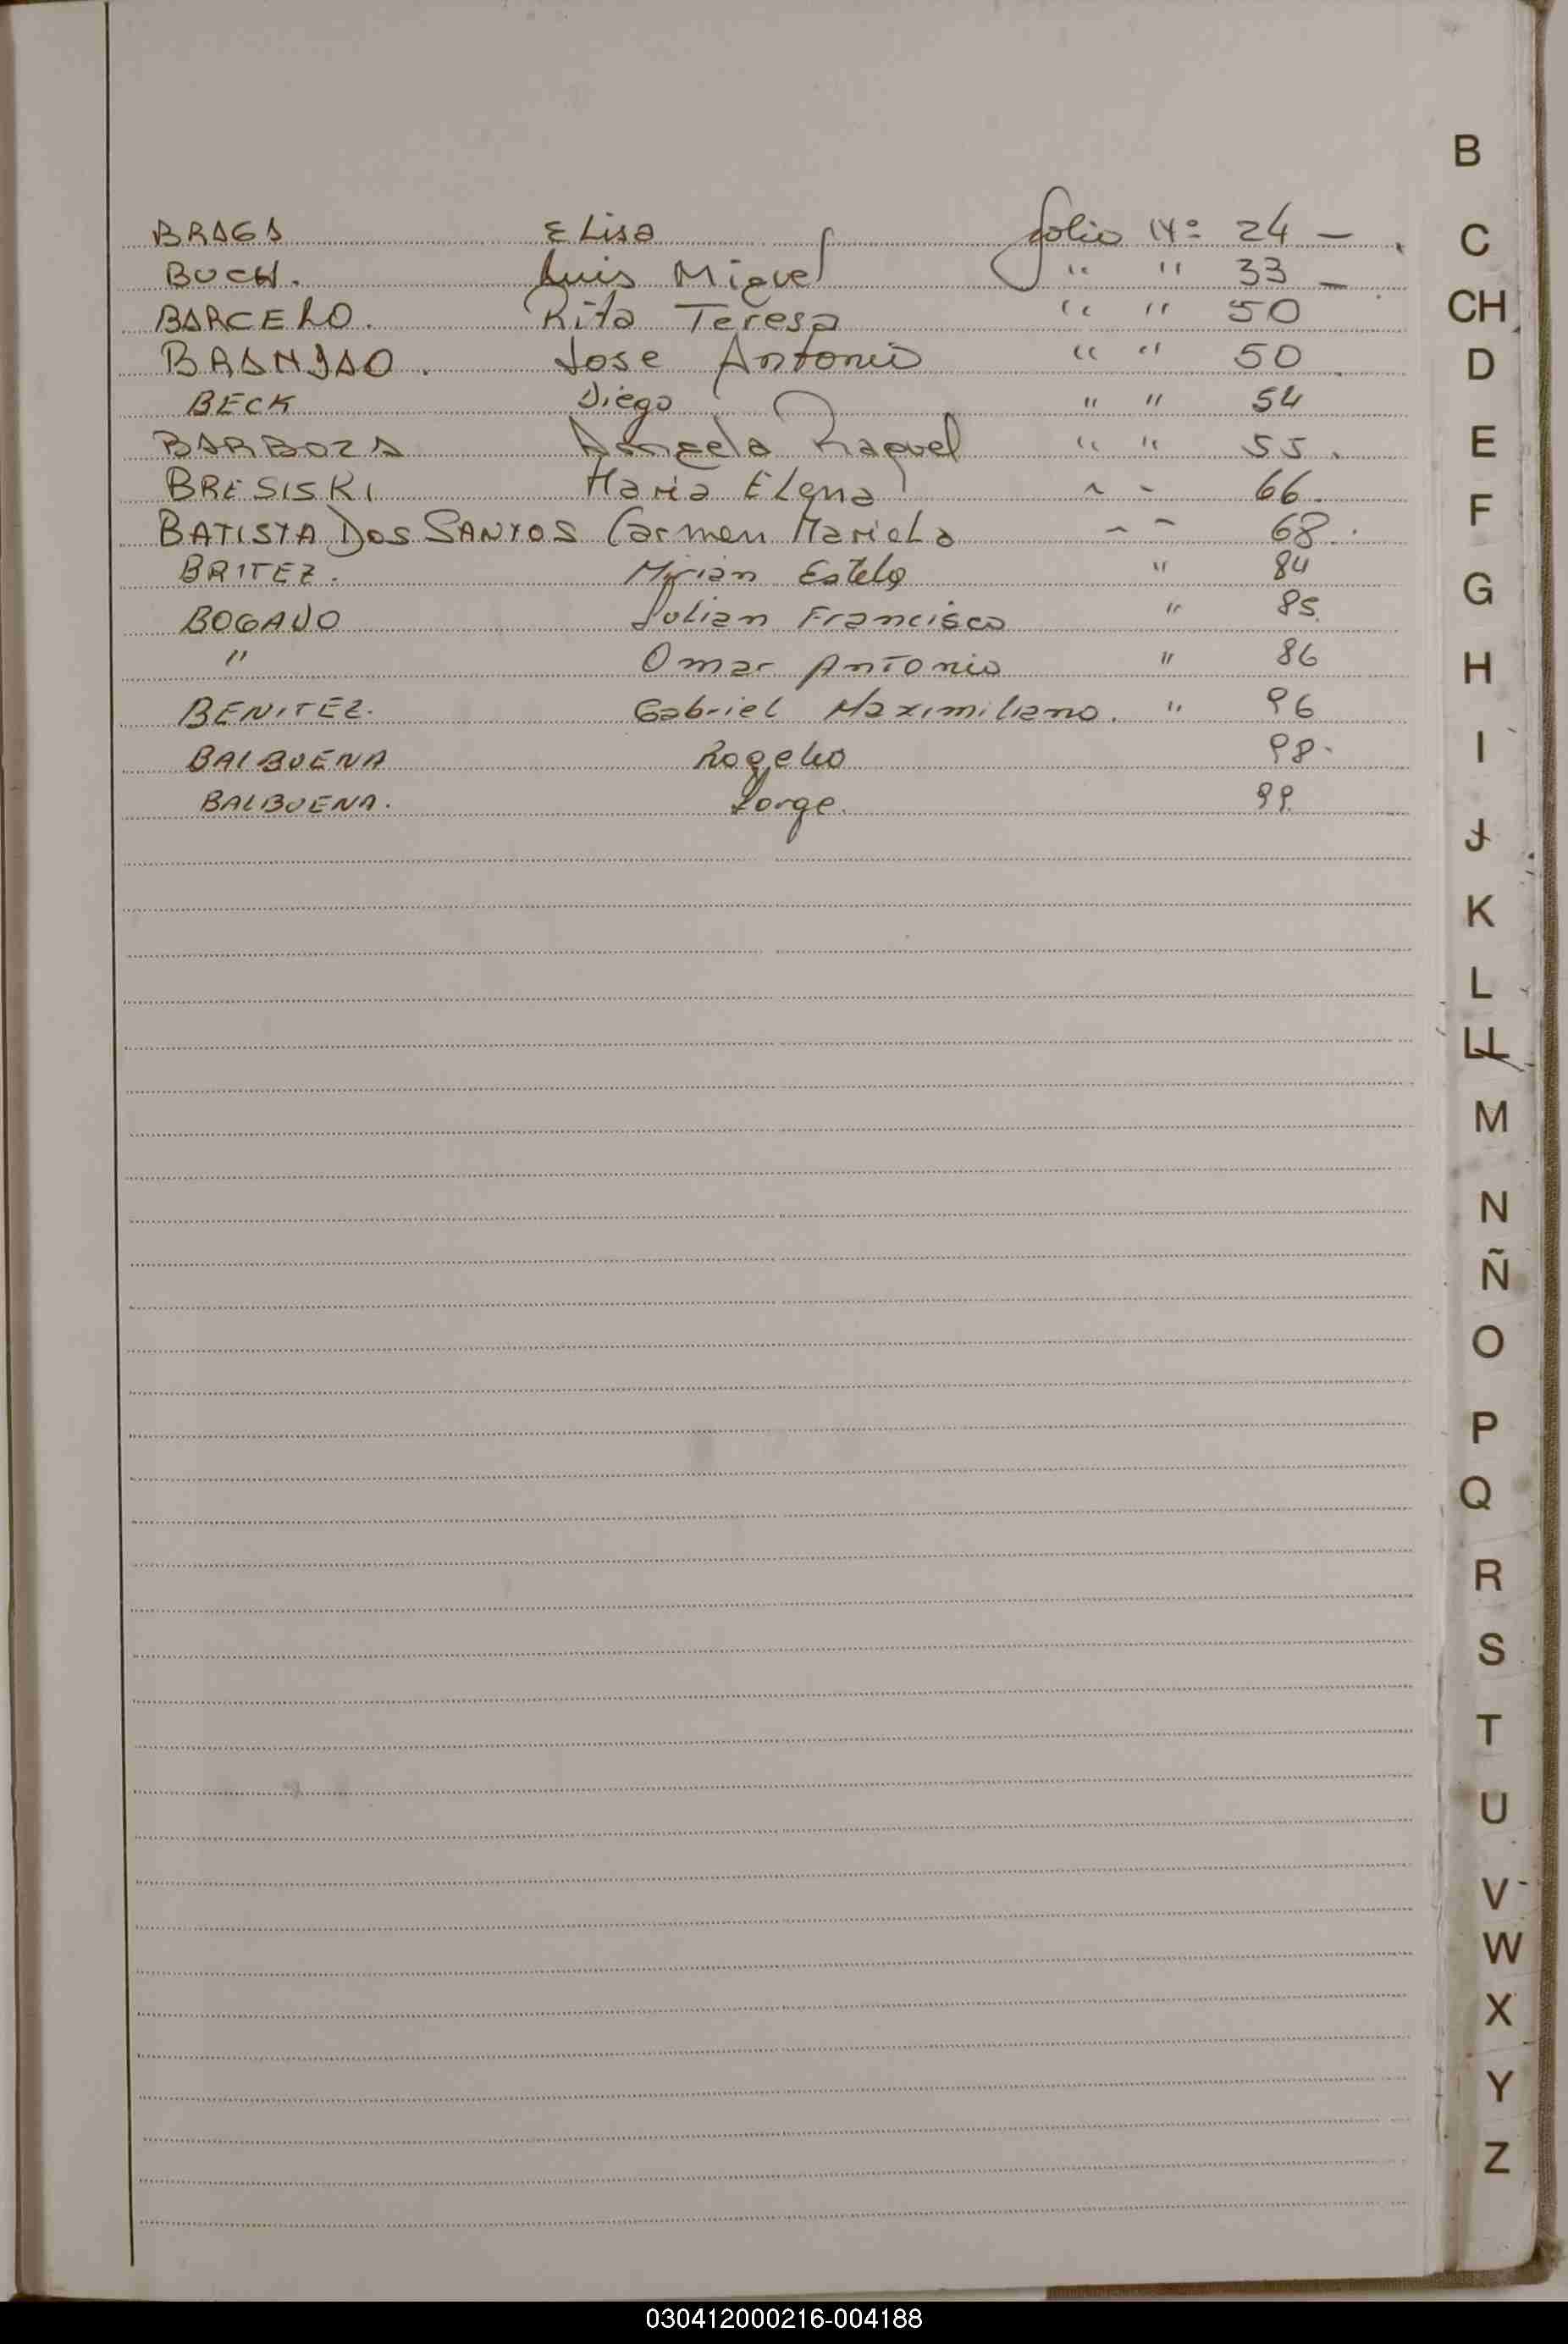 BRAGA Elisa folio Nº 24 —
BUCH. Luis Miguel " " 33 —
BARCELO. Rita Teresa " " 50
José Antonio " " 50
BECK Diego " " 54
BARBOZA Angela Raquel " " 55.
BRESISKI Maria Elena " " 66.
BATISTA DOS SANTOS Carmen Mariela " " 68.
BRITEZ. Mirian Estela " 84
BOGADO Julian Francisco " 85.
" Omar Antonio " 86
BENITEZ. Gabriel Maximiliano. " 96
BALBUENA Rogelio 98.
BALBUENA. Jorge. 99.
B
C
CH
D
E
F
G
H
I
J
K
L
LL
M
N
Ñ
O
P
Q
R
S
T
U
V
W
X
Y
Z
030412000216-004188